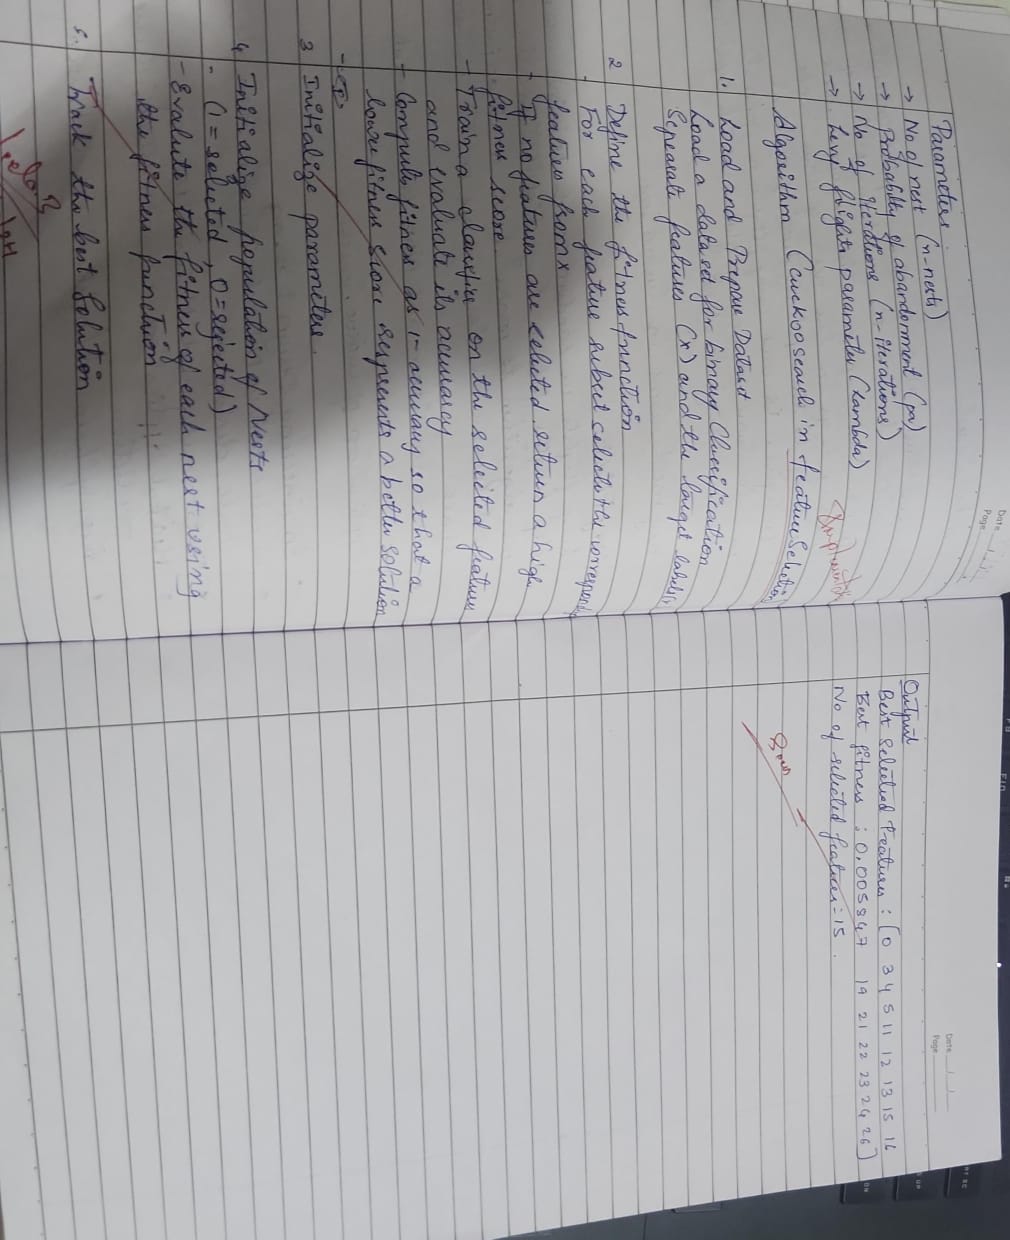 Date
Page
Parameters.
→ No of nest (n-nests)
→ Probability of abandonment (pa)
→ No of iterations (n-iterations)
→ Levy flights parameter (lambda)
Algorithm (Cuckoo search in feature Selection)
1. Load and Prepare Dataset
Load a dataset for binary classification
Separate features (x) and the target labels
2 Define the fitness function
For each feature subset selects the correspond
features from x
- If no features are selected return a high
fitness score.
- Train a classifier on the selected features
and evaluate its accuracy
- Compute fitness as 1 - accuracy so that a
lower fitness score represents a better solution
3 Initialize parameters.
4. Initialize population of Nests
- (1 = selected, 0 = rejected)
- Evalute the fitness of each nest using
the fitness function
5. Track the best solution
Date
Page
Output
Best Selected Features : [0 3 4 5 11 12 13 15 16
Best fitness : 0.005847 19 21 22 23 24 26]
No of selected features = 15.